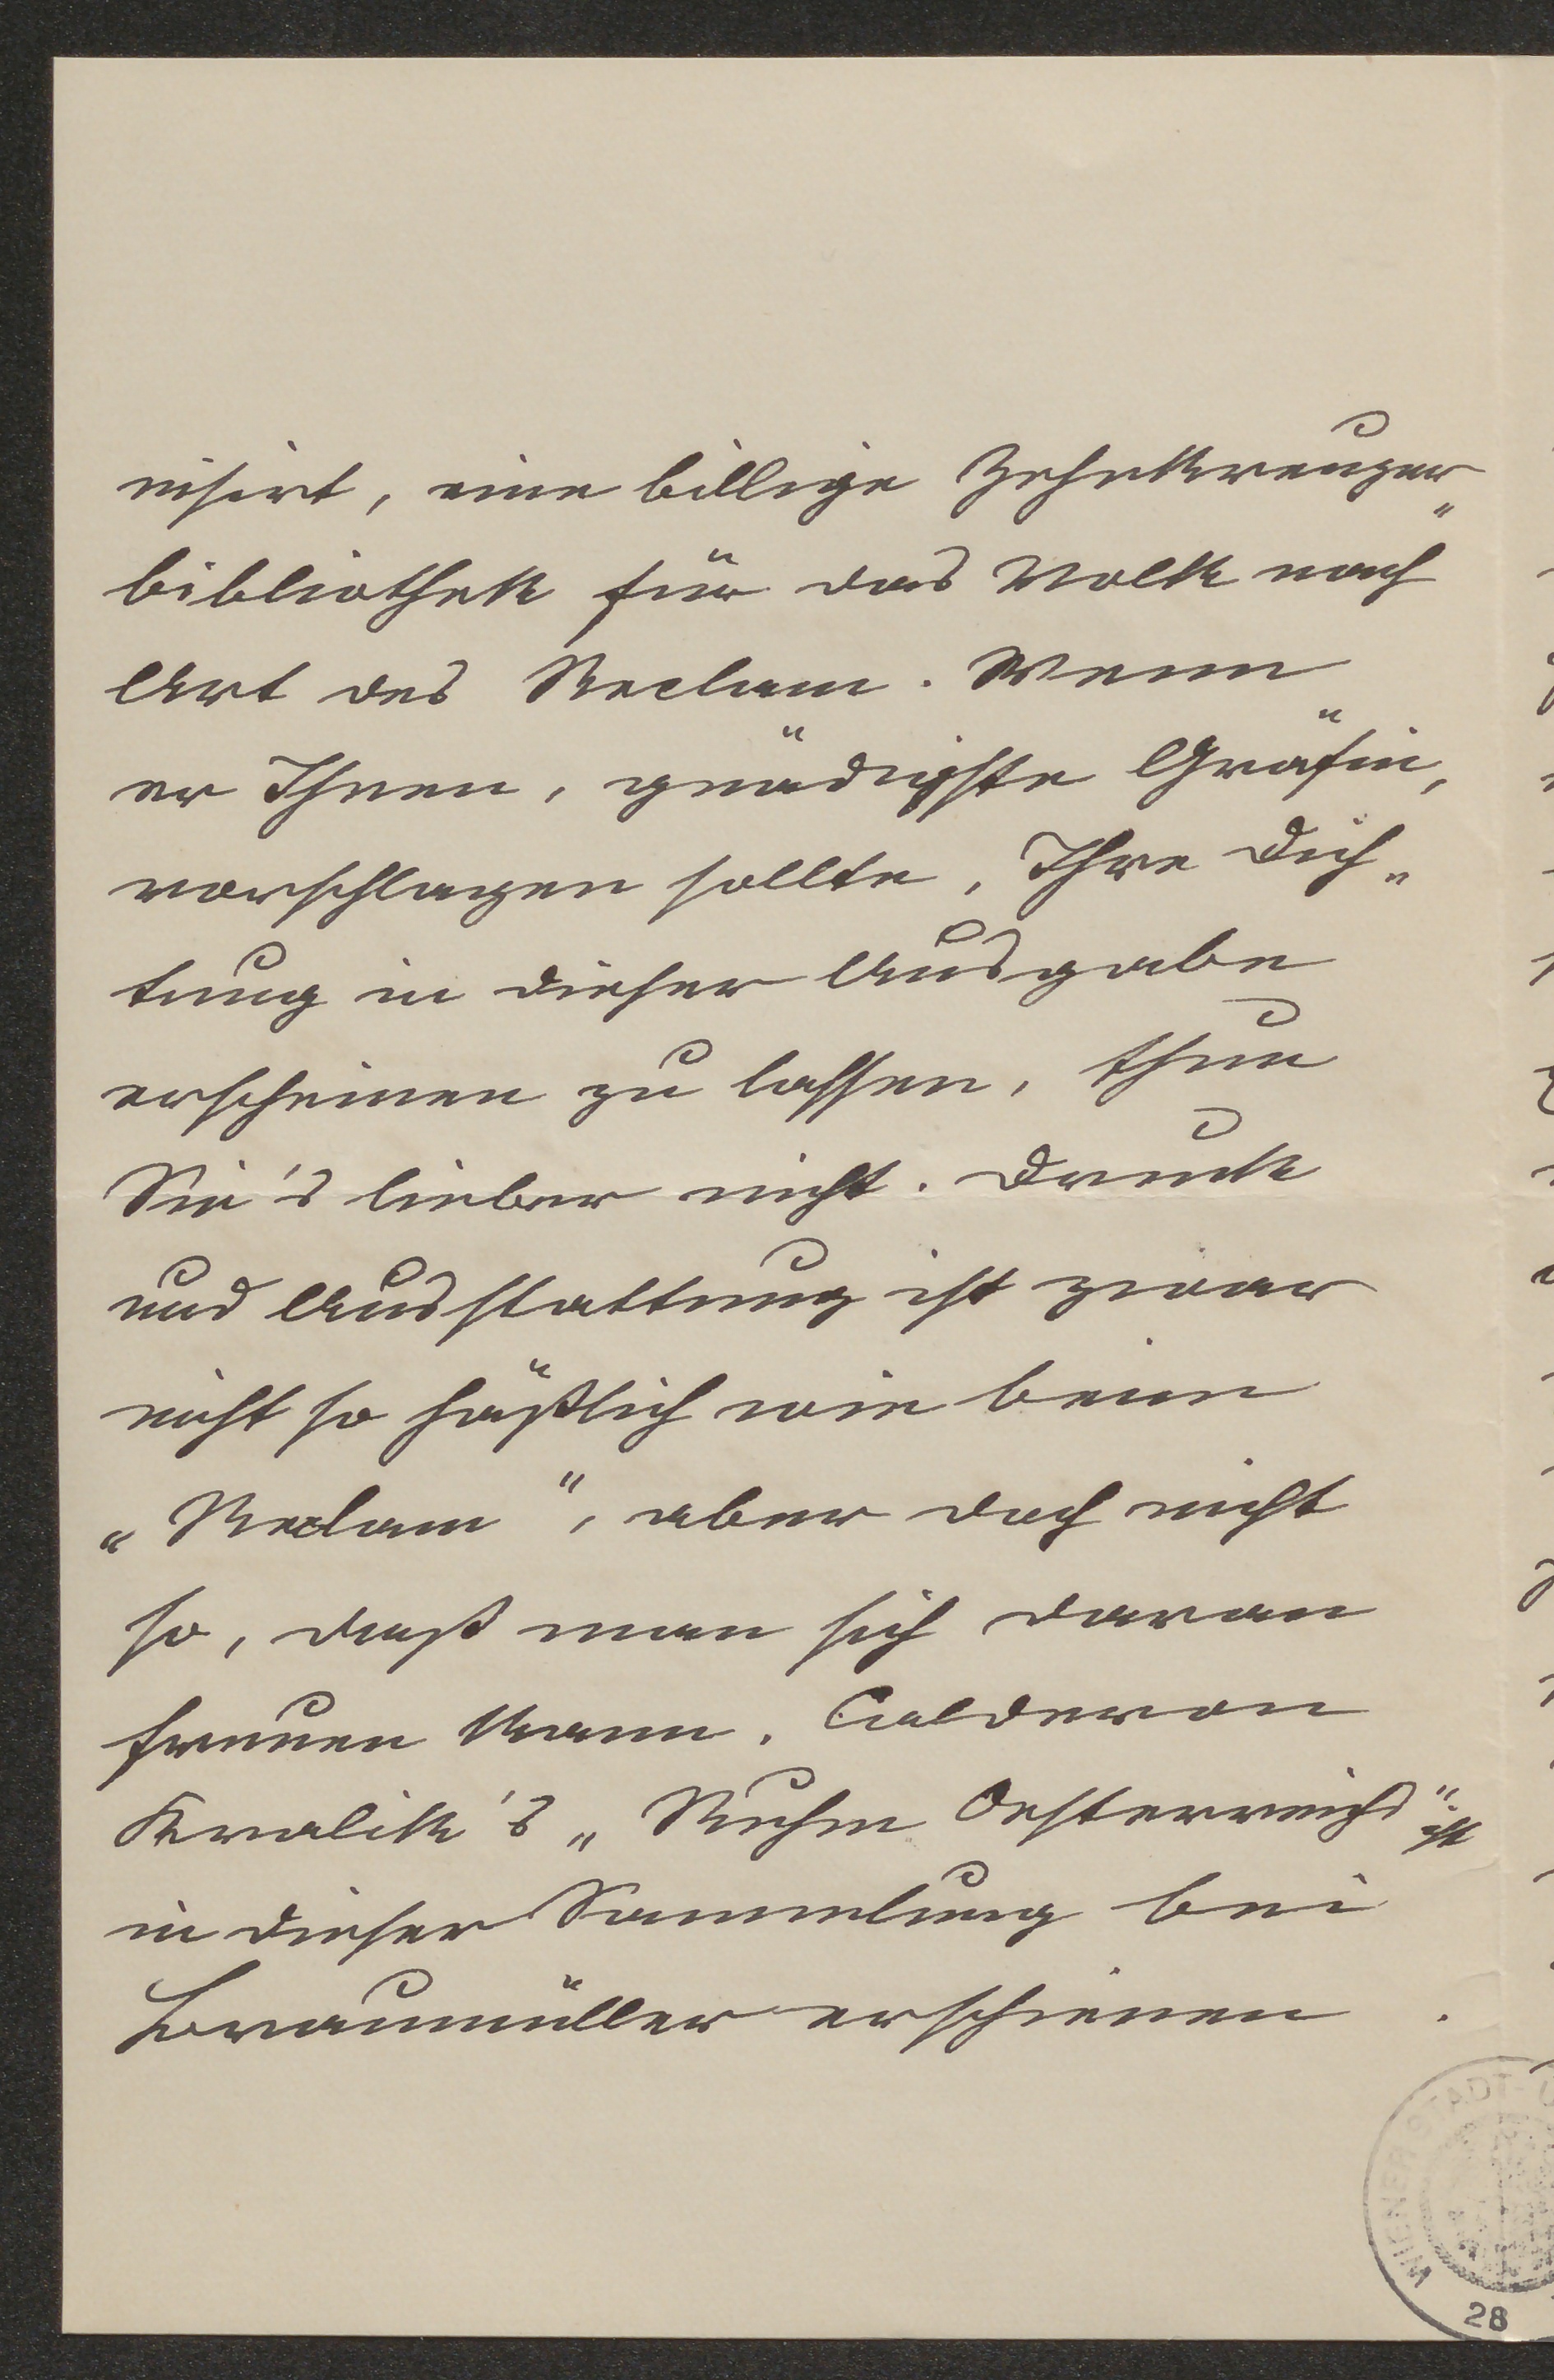 nisirt, eine billige Zehnkreuzer„
bibliothek für das Volk nach
Art des Reclam. Wenn
er Ihnen, gnädigste Gräfin,
vorschlagen sollte, Ihre Dich„
tung in dieser Ausgabe
erscheinen zu lassen, thun
Sie's lieber nicht. Druck
und Ausstattung ist zwar
nicht so häßlich wie beim
„Reclam", aber doch nicht
so, daß man sich daran
freuen kann. Calderon
Kralik's „Ruhm Oesterreichs" ist
in dieser Sammlung bei
Braumüller erschienen.
WIENER STADT-
28